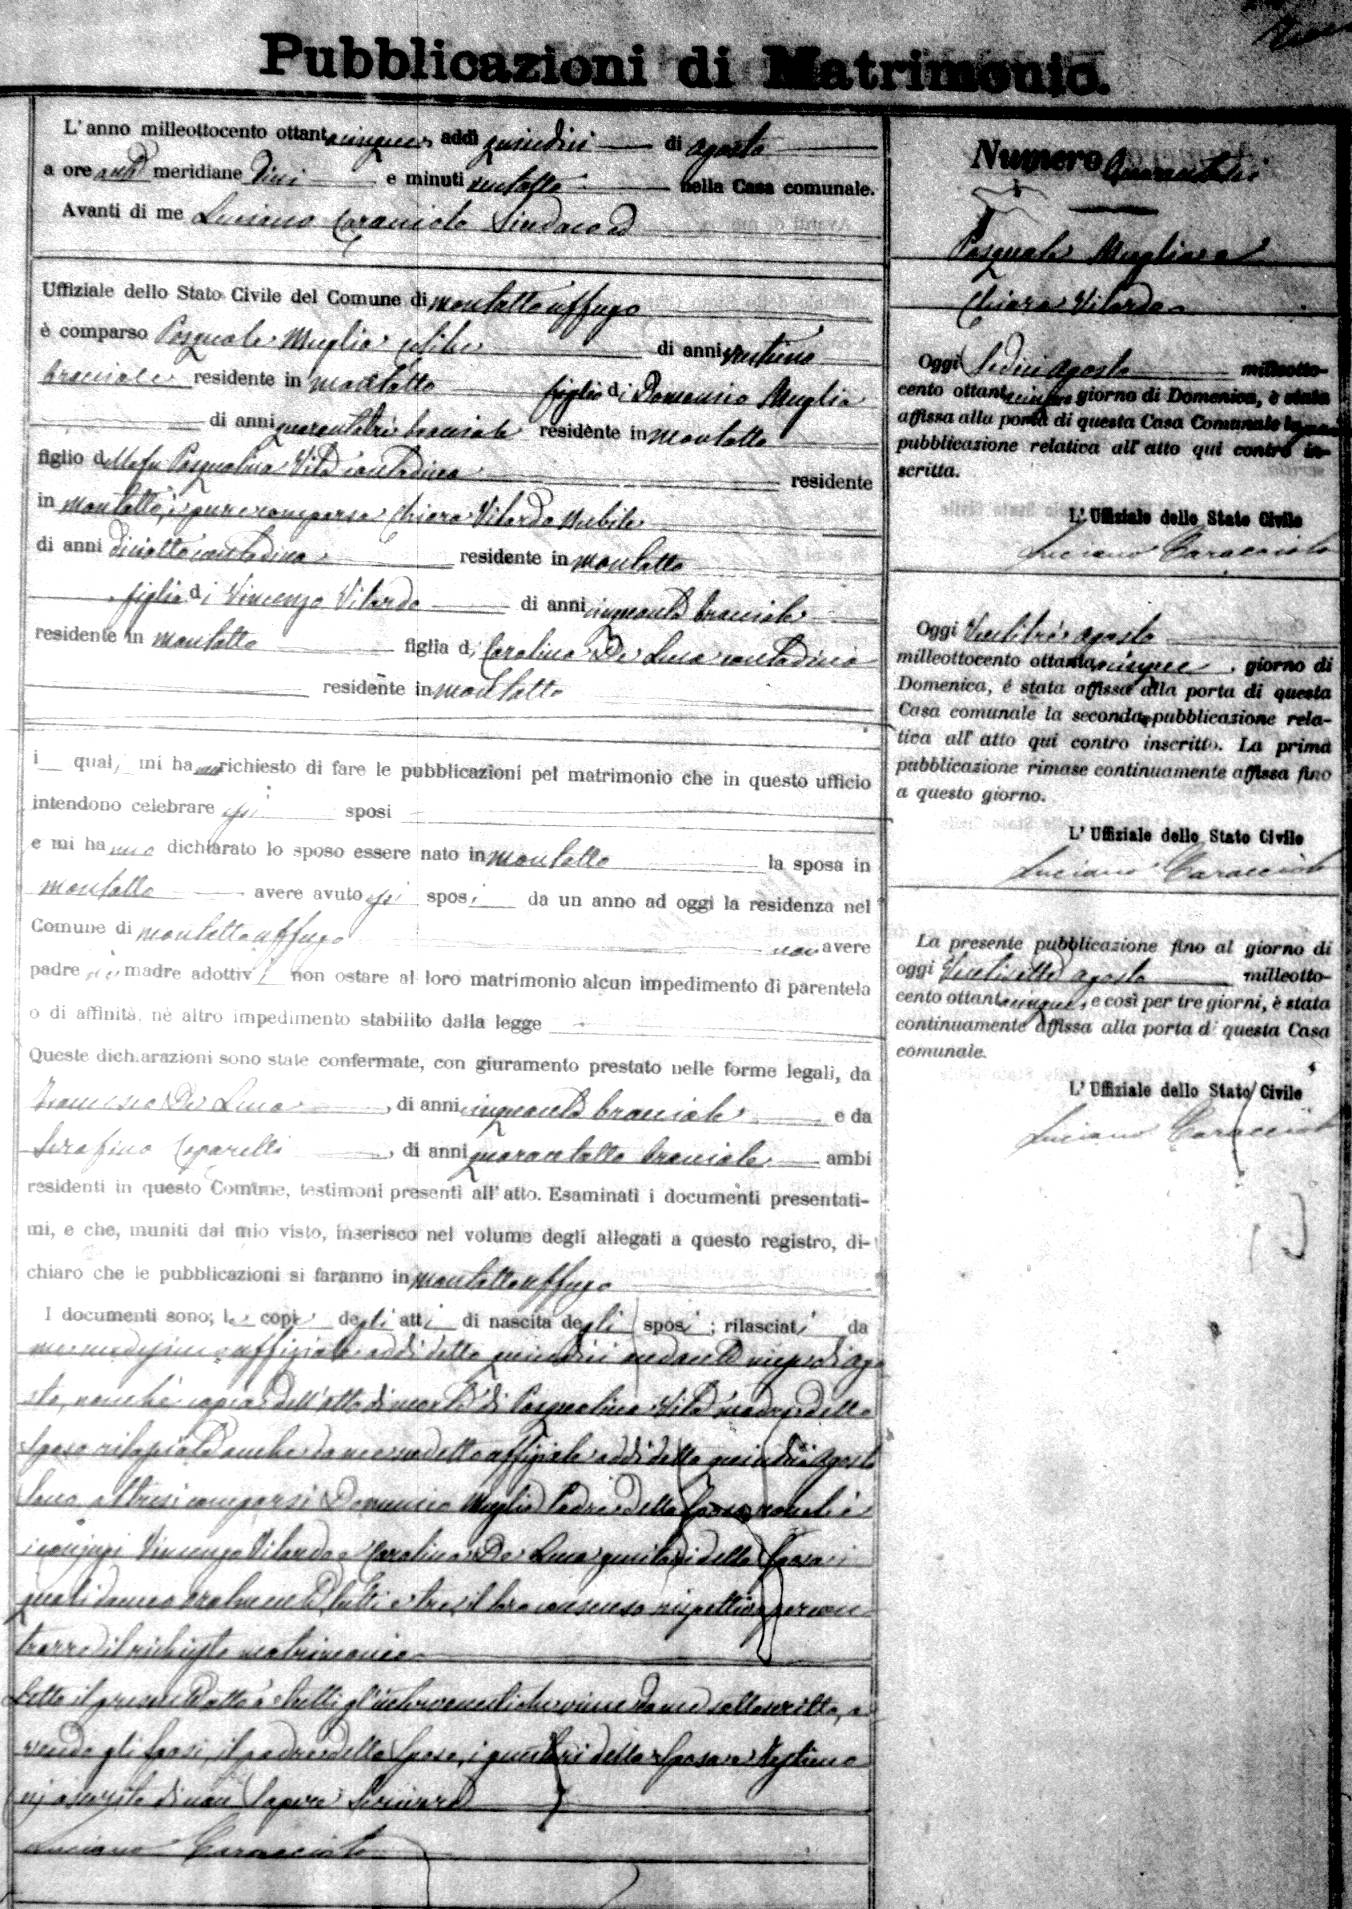 Pubblicazioni di Matrimonio.
L'anno milleottocento ottantacinque addì quindici di agosto
a ore anti meridiane dieci e minuti ventotto nella Casa comunale.
Avanti di me Luciano Caracciolo Sindaco ed
Uffiziale dello Stato Civile del Comune di Montalto Uffugo
è comparso Pasquale Muglia celibe di anni ventuno
bracciale residente in Montalto figlio di Domenico Muglia
di anni quarantatré bracciale residente in Montalto
figlio della fu Pasqualina Vita contadina residente
in Montalto, è pure comparsa Chiara Vilardo nubile
di anni diciotto contadina residente in Montalto
figlia di Vincenzo Vilardo di anni cinquanta bracciale
residente in Montalto figlia di Carolina De Luca contadina
residente in Montalto
i quali mi hanno richiesto di fare le pubblicazioni pel matrimonio che in questo ufficio
intendono celebrare essi sposi
e mi hanno dichiarato lo sposo essere nato in Montalto la sposa in
Montalto avere avuto essi sposi da un anno ad oggi la residenza nel
Comune di Montalto Uffugo non avere
padre nè madre adottivi non ostare al loro matrimonio alcun impedimento di parentela
o di affinità, nè altro impedimento stabilito dalla legge
Queste dichiarazioni sono state confermate, con giuramento prestato nelle forme legali, da
Francesco De Luca, di anni cinquanta bracciale e da
Serafino Caparelli, di anni quarantotto bracciale ambi
residenti in questo Comune, testimoni presenti all'atto. Esaminati i documenti presentati-
mi, e che, muniti dal mio visto, inserisco nel volume degli allegati a questo registro, di-
chiaro che le pubblicazioni si faranno in Montalto Uffugo
I documenti sono; le copie degli atti di nascita degli sposi; rilasciati da
me medesimo uffiziale addì detto quindici andante mese di ago
sto, nonché copia dell'atto di morte di Pasqualina Vita madre dello
sposo rilasciata anche da me suddetto uffiziale addì detto quindici agosto
Sono altresì comparsi Domenico Muglia Padre dello Sposo, nonché
i coniugi Vincenzo Vilardo e Carolina De Luca genitori della Sposa i
quali danno oralmente tutti e tre il loro consenso rispettivo per con
trarre il richiesto matrimonio
Letto il presente atto a tutti gl'intervenuti che viene da me sottoscritto, a
vendo gli sposi, il padre dello Sposo, i genitori della Sposa e testimo
nj asserito di non sapere scrivere
Luciano Caracciolo
Numero
Pasquale Muglia e
Chiara Vilardo
Oggi Sedici agosto milleotto-
cento ottantacinque giorno di Domenica, è stata
affissa alla porta di questa Casa Comunale la prima
pubblicazione relativa all'atto qui contro in-
scritta.
L'Uffiziale dello Stato Civile
Luciano Caracciolo
Oggi Ventitrè agosto
milleottocento ottantacinque, giorno di
Domenica, é stata affissa alla porta di questa
Casa comunale la seconda pubblicazione rela-
tiva all'atto qui contro inscritto. La prima
pubblicazione rimase continuamente affissa fino
a questo giorno.
L'Uffiziale dello Stato Civile
Luciano Caracciolo
La presente pubblicazione fino al giorno di
oggi Ventisette agosto milleotto-
cento ottantacinque, e così per tre giorni, è stata
continuamente affissa alla porta di questa Casa
comunale.
L'Uffiziale dello Stato Civile
Luciano Caracciolo